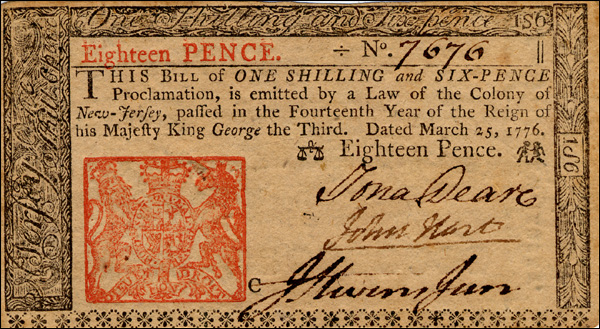 One Shilling and Six pence
1S6
Eighteen PENCE. ÷ No. 7676 ||
THIS BILL of ONE SHILLING and SIX-PENCE
Proclamation, is emitted by a Law of the Colony of
New-Jerſey, paſſed in the Fourteenth Year of the Reign of
his Majeſty King George the Third. Dated March 25, 1776.
Eighteen Pence.
1S6
Jona Deare
John Hart
C
J Stevens Jun